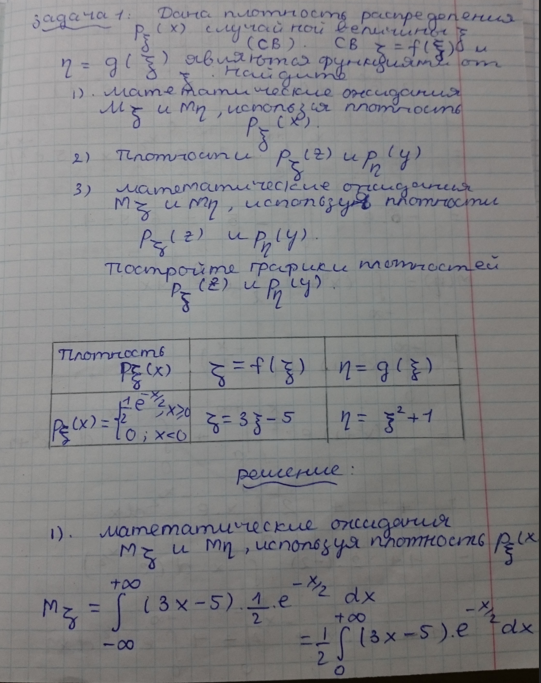 задача 1. Дана плотность распределения
P_ξ(x) случайной величины ξ
(СВ). СВ ζ = f(ξ) и
η = g(ξ) являются функциями от
ξ. Найдить
1). математические ожидания
Mζ и Mη, используя плотность
P_ξ(x).
2) Плотности P_ζ(z) и P_η(y)
3) математические ожидания
Mζ и Mη, используя плотности
P_ζ(z) и P_η(y).
Постройте графики плотностей
P_ζ(z) и P_η(y).
Плотность P_ξ(x) | ζ = f(ξ) | η = g(ξ)
P_ξ(x) = {1/2 e^{-x/2}; x≥0 {0; x<0 | ζ = 3ξ - 5 | η = ξ² + 1
решение:
1). математические ожидания
Mζ и Mη, используя плотность P_ξ(x
Mζ = ∫_{-∞}^{+∞} (3x-5) · 1/2 · e^{-x/2} dx
= 1/2 ∫_0^{+∞} (3x-5) · e^{-x/2} dx